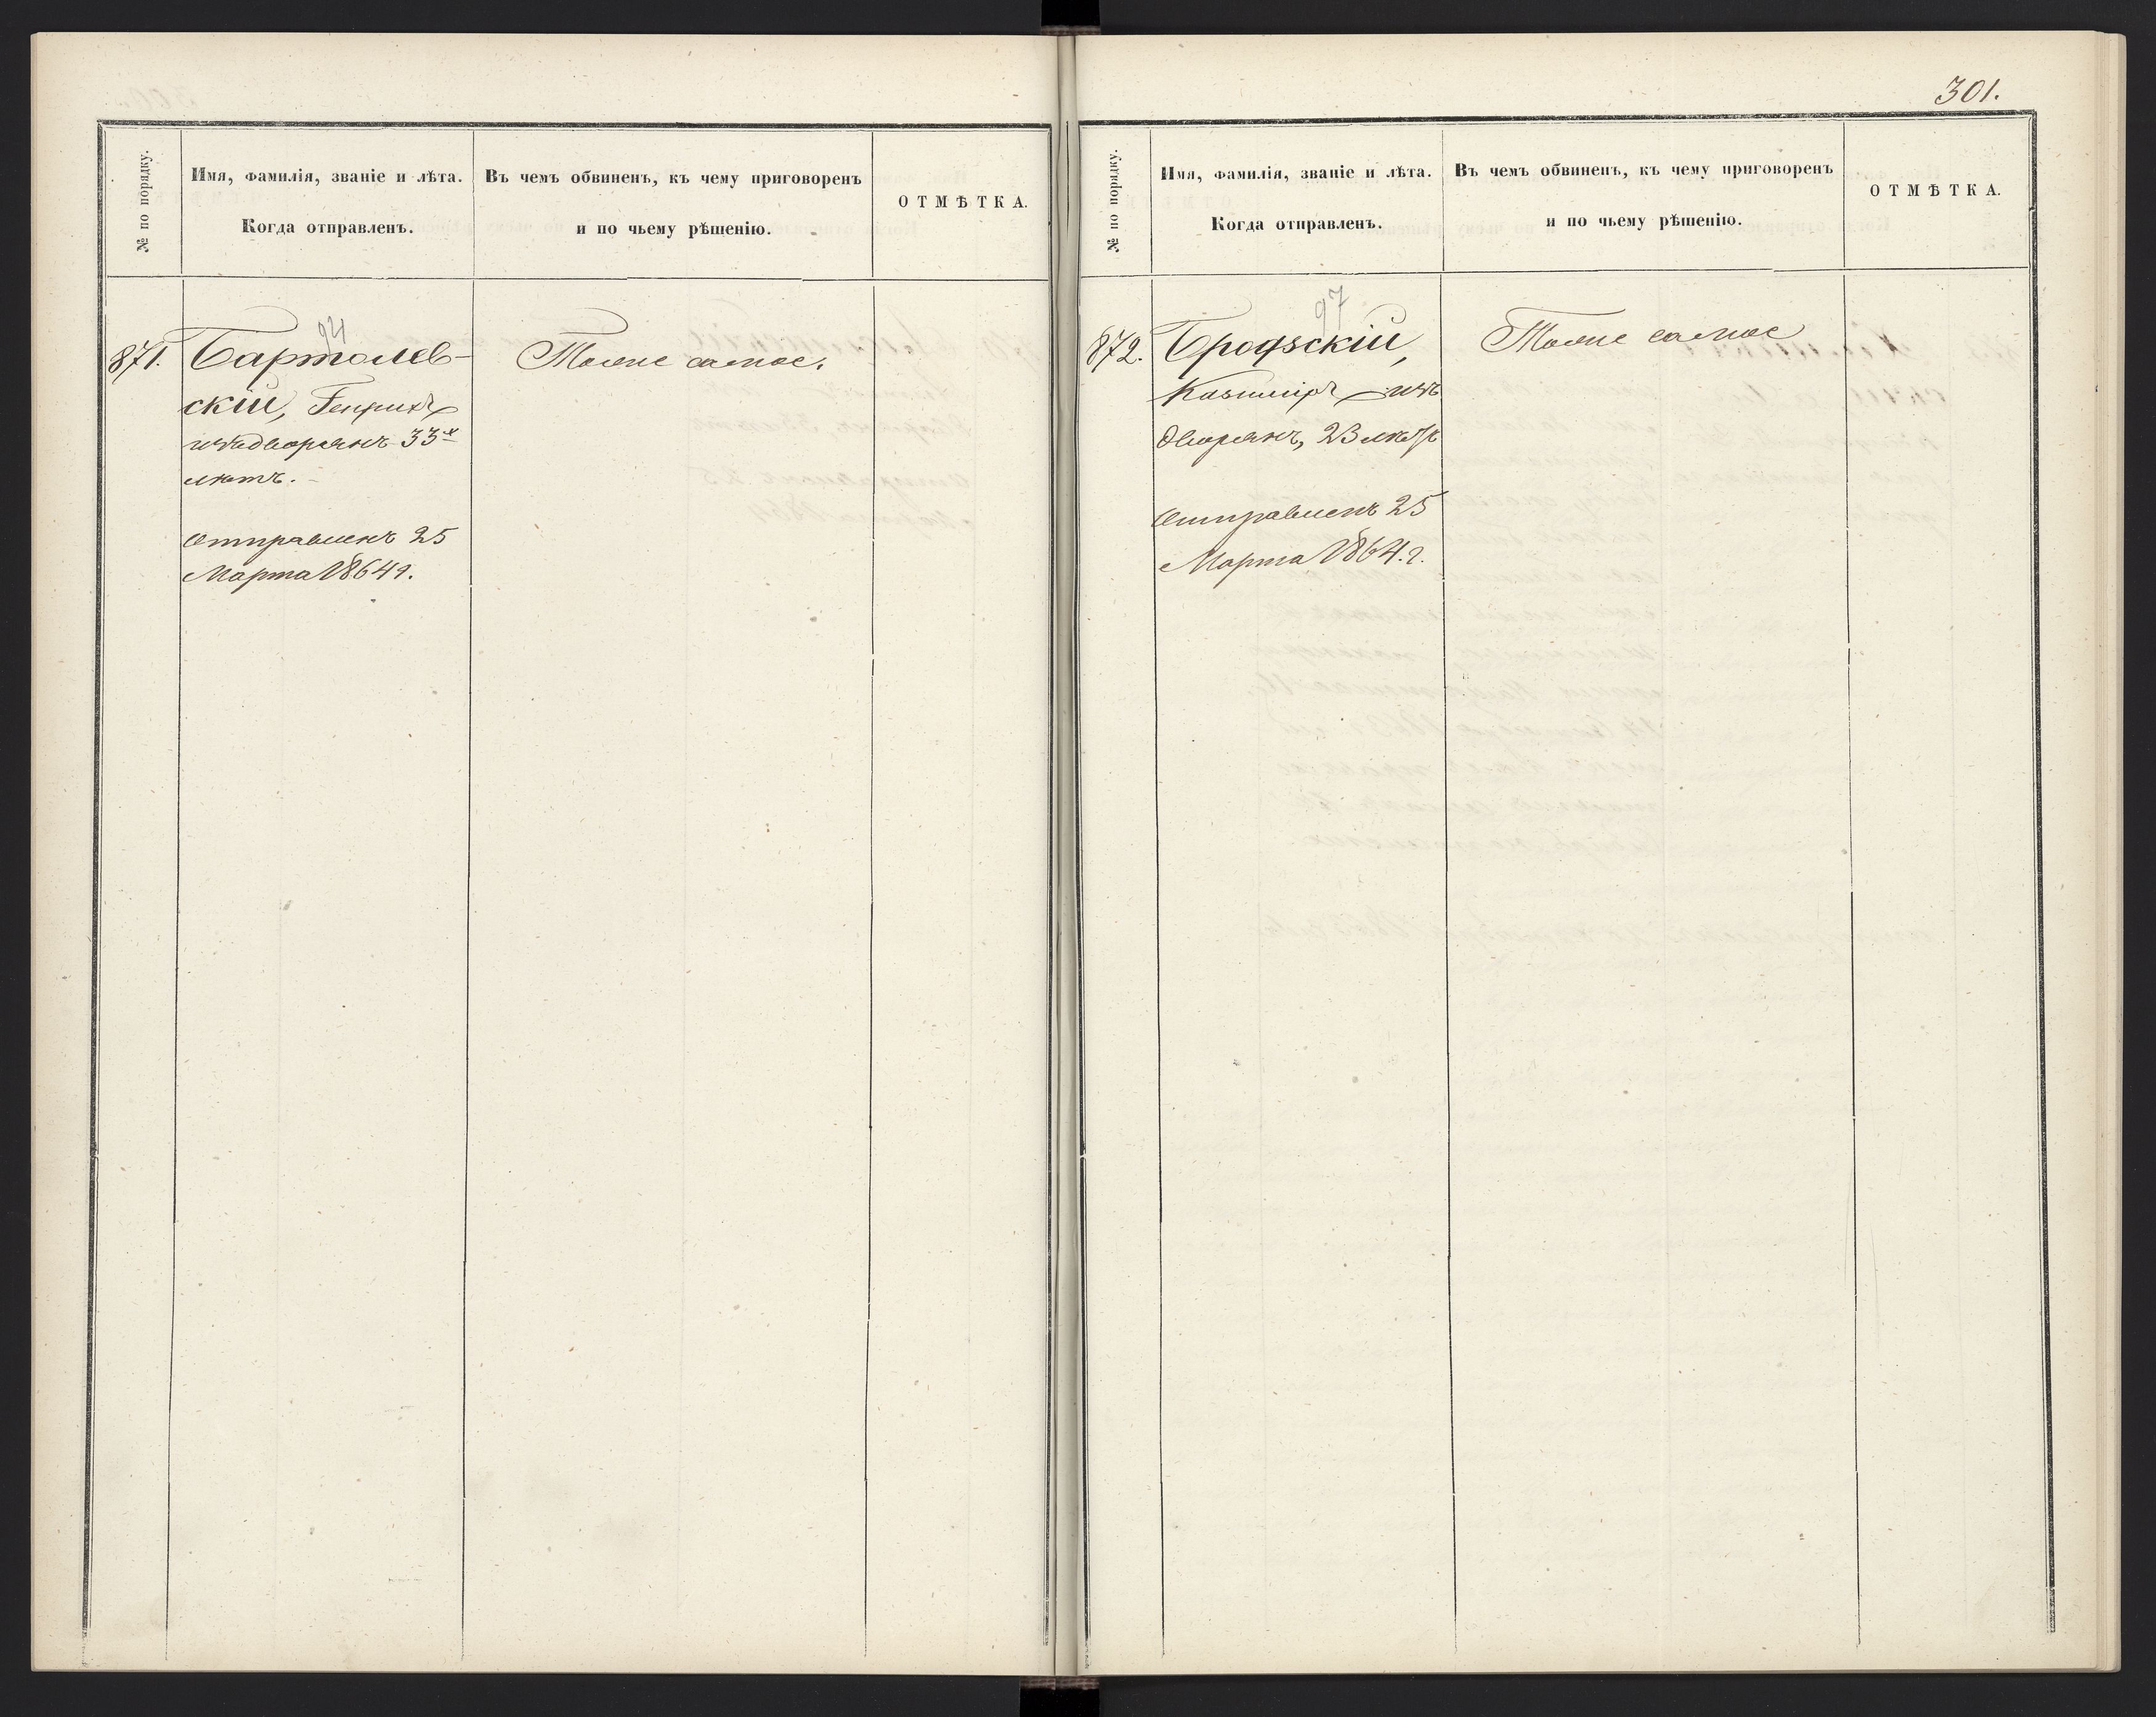 № по порядку.
Имя, фамилія, званіе и лѣта.
Когда отправленъ.
Въ чемъ обвиненъ, къ чему приговоренъ
и по чьему рѣшенію.
ОТМѢТКА.
94
871.
Бартолев-
скій, Генрихъ
изъ дворянъ 33х
лѣтъ.
Отправленъ 25
Марта 1864 г.
Тоже самое.
301.
№ по порядку.
Имя, фамилія, званіе и лѣта.
Когда отправленъ.
Въ чемъ обвиненъ, къ чему приговоренъ
и по чьему рѣшенію.
ОТМѢТКА.
97
872.
Бродзскій,
Казиміръ изъ
дворянъ, 23 лѣтъ
Отправленъ 25
Марта 1864. г.
Тоже самое